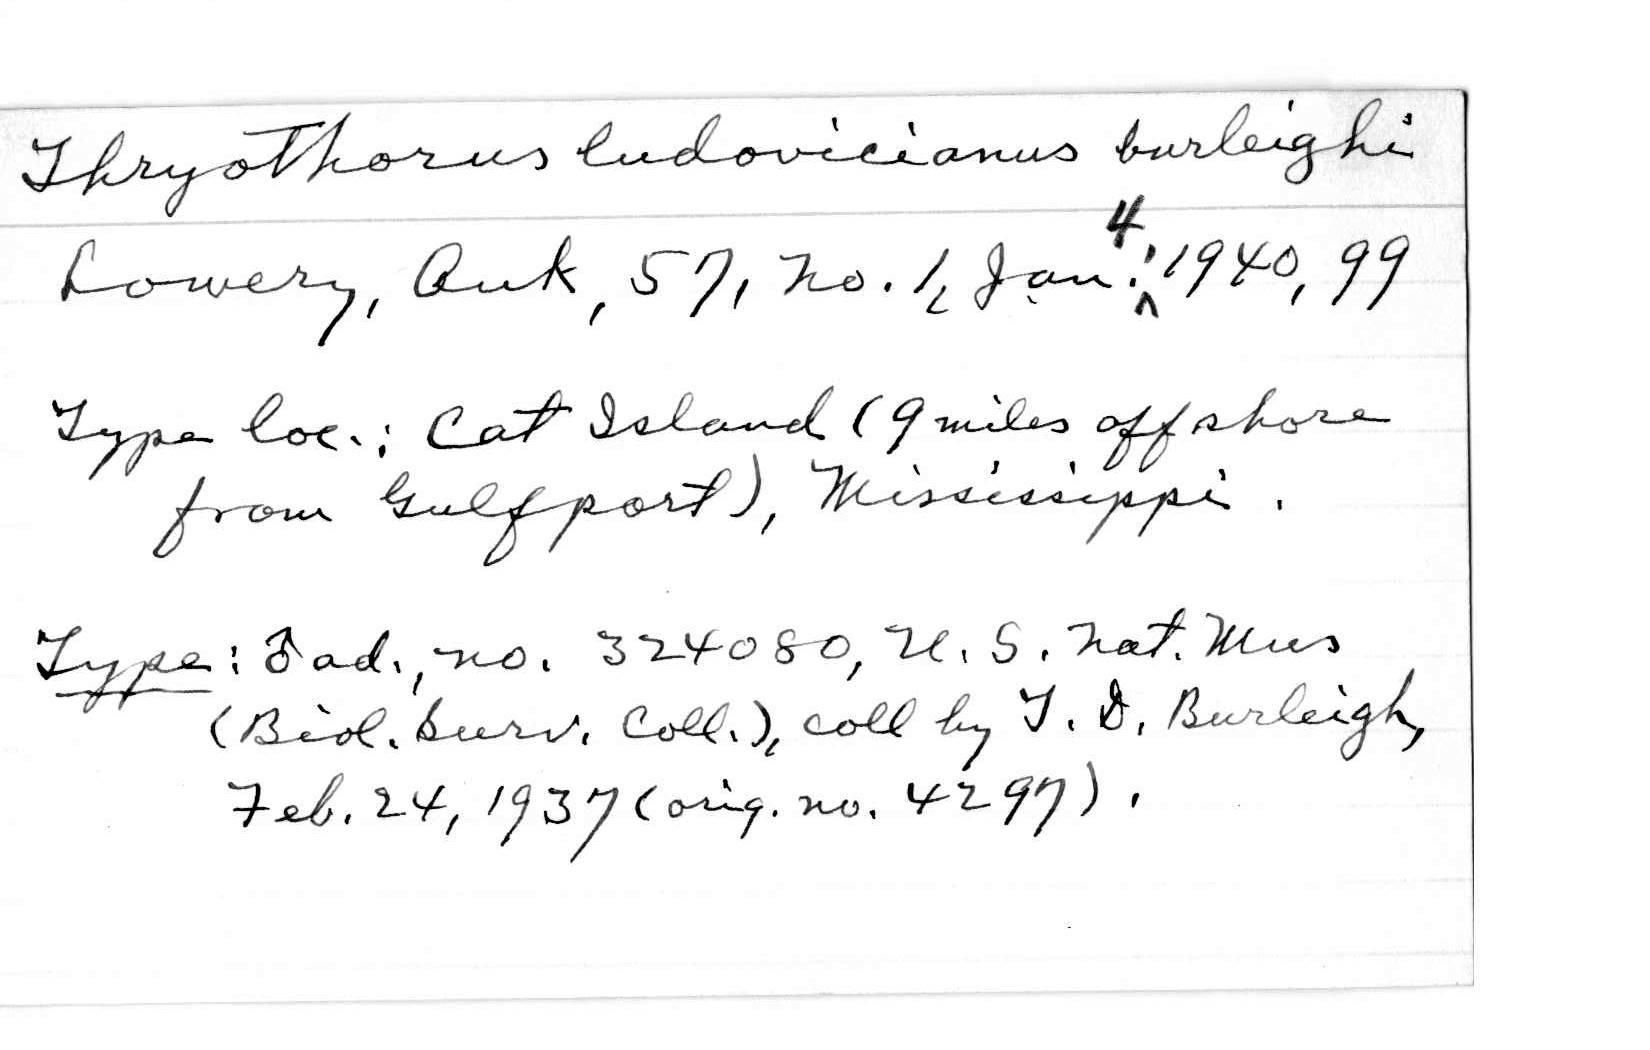 Thryothorus ludovicianus burleighi
Lowery, Auk, 57, no. 1, Jan. 4, 1940, 99
Type loc.: Cat Island (9 miles offshore
from Gulfport), Mississippi.
Type: ♂ ad., no. 324080, U. S. Nat. Mus
(Biol. Surv. Coll.), coll by T. D. Burleigh,
Feb. 24, 1937 (orig. no. 4297).